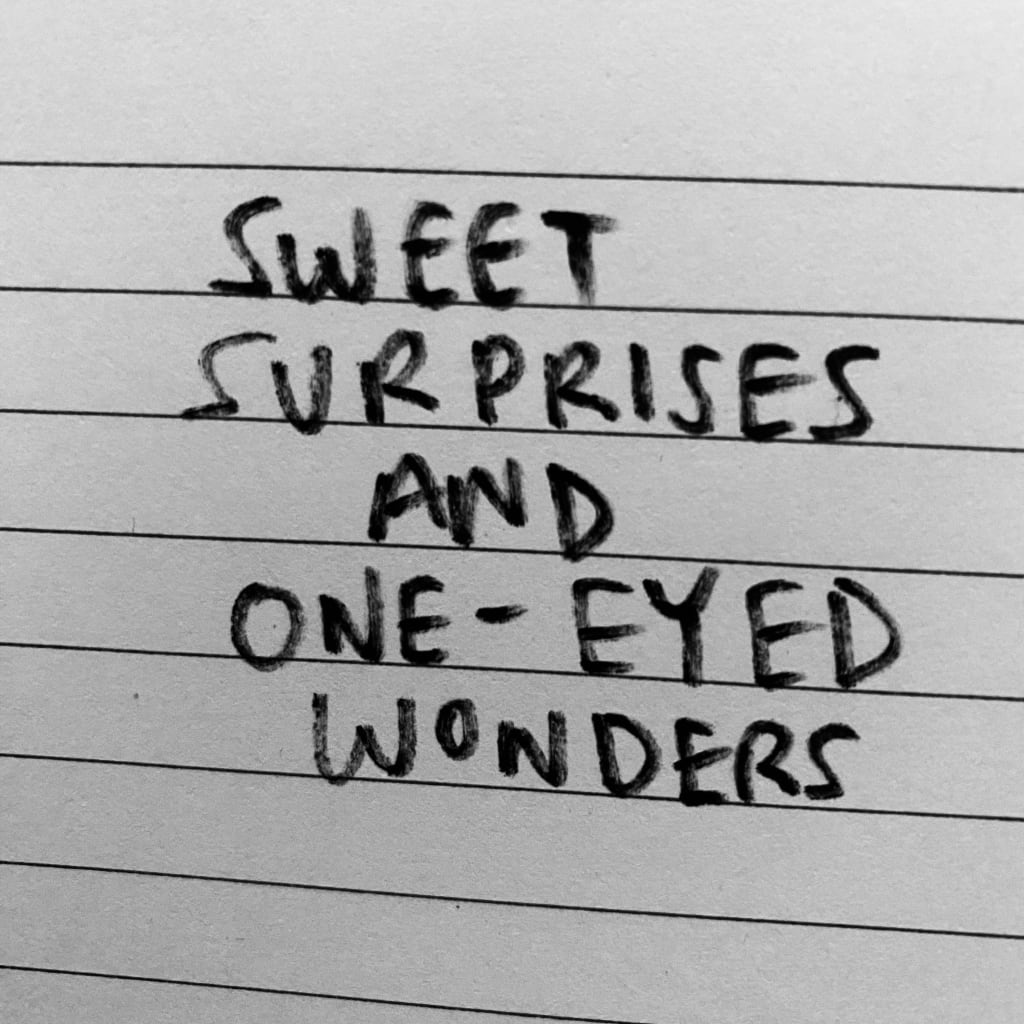 SWEET
SURPRISES
AND
ONE-EYED
WONDERS